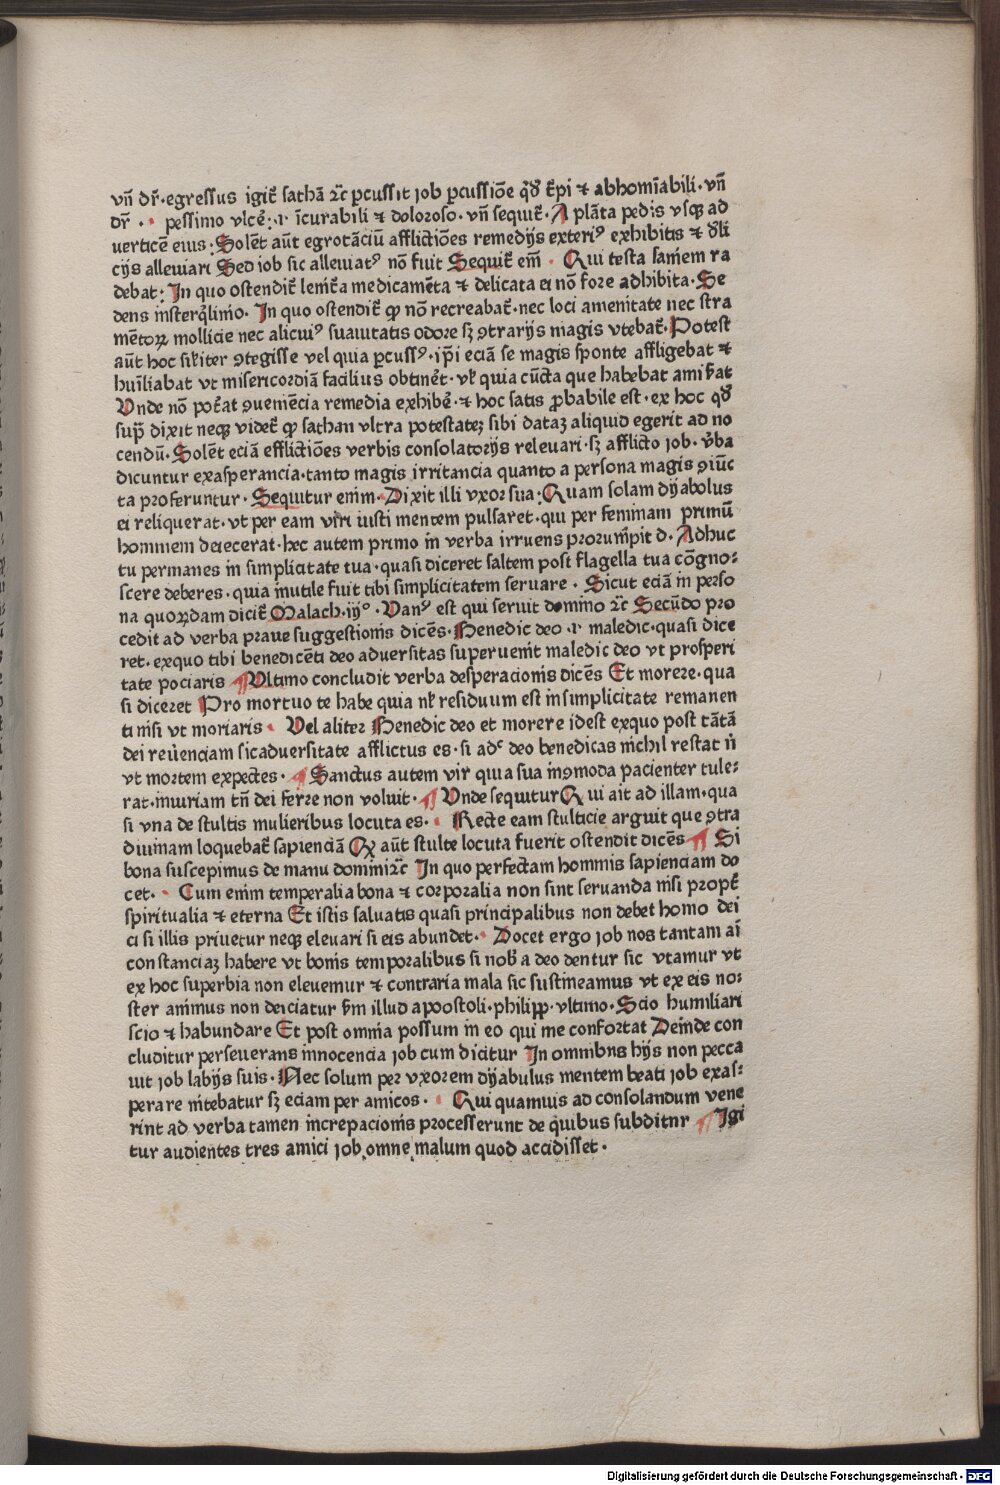 vn̄ dr̄·egressus igit̄ sathā ⁊c̄ ꝑcussit job ꝑcussiōe qd̄ t̄pi ⁊ abhomīabili·vn̄
dr̄ · pessimo vlcē·ı· īcurabili ⁊ doloroso·vn̄ sequit̄·A plāta pedis vsqꝫ ad
uerticē eius·Solēt aūt egrotāciū afflictiōes remedijs exteriꝰ exhibitis ⁊ d̄li
cijs alleuiari Sed iob sic alleuiatꝰ nō fuit Sequit̄ em̄ · Qui testa saniem ra
debat·In quo ostendit̄ lenit̄a medicamēta ⁊ delicata ei nō fore adhibita·Se
dens insterq̄linio·In quo ostendit̄ ꝙ nō recreabat̄·nec loci amenitate nec stra
mētoꝝ mollicie nec alicuiꝰ suauitatis odore sꝫ ꝯtrarijs magis vtebat̄·Potest
aūt hoc silʼiter ꝯtegisse vel quia ꝑcussꝰ·ip̄i eciā se magis sponte affligebat ⁊
hūiliabat vt misericordiā facilius obtinēt·vlʼ quia cūcta que habebat amis̄at
Unde nō pot̄at ꝯueniēcia remedia exhibē·⁊ hoc satis ꝓbabile est·ex hoc qd̄
sup̄ dixit neqꝫ videt̄ ꝙ sathan vltra potestateꝫ sibi dataꝫ aliquid egerit ad no
cendū·Solēt eciā efflictiōes verbis consolatorijs releuari·sꝫ afflicto job·v̄ba
dicuntur exasperancia·tanto magis irritancia quanto a persona magis ꝯiūc
ta proferuntur·Sequitur enim·Dixit illi vxor sua·Quam solam dyabolus
ei reliquerat·vt per eam viri iusti mentem pulsaret·qui per feminam primū
hominem deiecerat·hec autem primo in verba irruens prorumpit d·Adhuc
tu permanes in simplicitate tua·quasi diceret saltem post flagella tua cōgno⸗
scere deberes·quia inutile fuit tibi simplicitatem seruare·Sicut eciā in perso
na quoꝝdam dicit̄ Malach·iijᵒ·Vanꝰ est qui seruit domino ⁊c̄ Secūdo pro
cedit ad verba praue suggestionis dicēs·Benedic deo·ı· maledic·quasi dice
ret·exquo tibi benedicēti deo aduersitas superuenit maledic deo vt prosperi
tate pociaris ¶Ultimo concludit verba desperacionis dicēs Et morere·qua
si diceret Pro mortuo te habe quia nlʼ residuum est insimplicitate remanen
ti nisi vt moriaris · Vel aliter Benedic deo et morere idest exquo post tātā
dei reūenciam sicaduersitate afflictus es·si adᶜ deo benedicas nichil restat n̄
vt mortem expectes·¶Sanctus autem vir quia sua inꝯmoda pacienter tule⸗
rat·iniuriam tn̄ dei ferre non voluit·¶Vnde sequitur Qui ait ad illam·qua
si vna de stultis mulieribus locuta es· Recte eam stulticie arguit que ꝯtra
diuinam loquebat̄ sapienciā Qꝫ aūt stulte locuta fuerit ostendit dicēs ¶Si
bona suscepimus de manu domini⁊c̄ In quo perfectam hominis sapienciam do
cet· Cum enim temperalia bona ⁊ corporalia non sint seruanda nisi propt̄
spiritualia ⁊ eterna Et istis saluatis quasi principalibus non debet homo dei
ci si illis priuetur neqꝫ eleuari si eis abundet·Docet ergo job nos tantam aı̄
constanciaꝫ habere vt bonis temporalibus si nob̄ a deo dentur sic vtamur vt
ex hoc superbia non eleuemur ⁊ contraria mala sic sustineamus vt ex eis no⸗
ster animus non deiiciatur s̄m illud apostoli·philipp̄·vltimo·Scio humiliari
scio ⁊ habundare Et post omnia possum in eo qui me confortat Deinde con
cluditur perseuerans innocencia job cum dicitur In omnibns hijs non pecca
uit job labijs suis·Nec solum per vxorem dyabulus mentem beati job exas⸗
perare nitebatur sꝫ eciam per amicos· Qui quamuis ad consolandum vene
rint ad verba tamen increpacionis processerunt de quibus subditnr ¶Igi
tur audientes tres amici job omne malum quod accidisset·
Digitalisierung gefördert durch die Deutsche Forschungsgemeinschaft - DFG